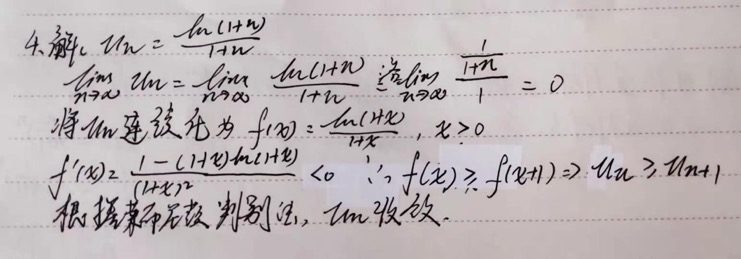 4.解: Un = ln(1+n)/(1+n)
lim n→∞ Un = lim n→∞ ln(1+n)/(1+n) 洛 lim n→∞ (1/(1+n))/1 = 0
将Un连续化为 f(x) = ln(1+x)/(1+x), x>0
f'(x) = (1-(1+x)ln(1+x))/(1+x)² <0 ∴ f(x) ≥ f(x+1) ⇒ Un ≥ Un+1
根据莱布尼兹判别法, Un收敛.